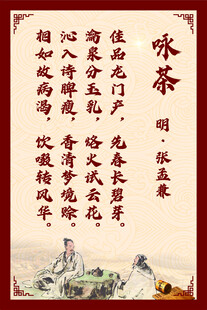 咏茶
明·张孟兼
佳品龙门产，先春长碧芽。
瀹泉分玉乳，烙火试云花。
沁入诗脾瘦，香清梦境赊。
相如故病渴，饮啜转风华。